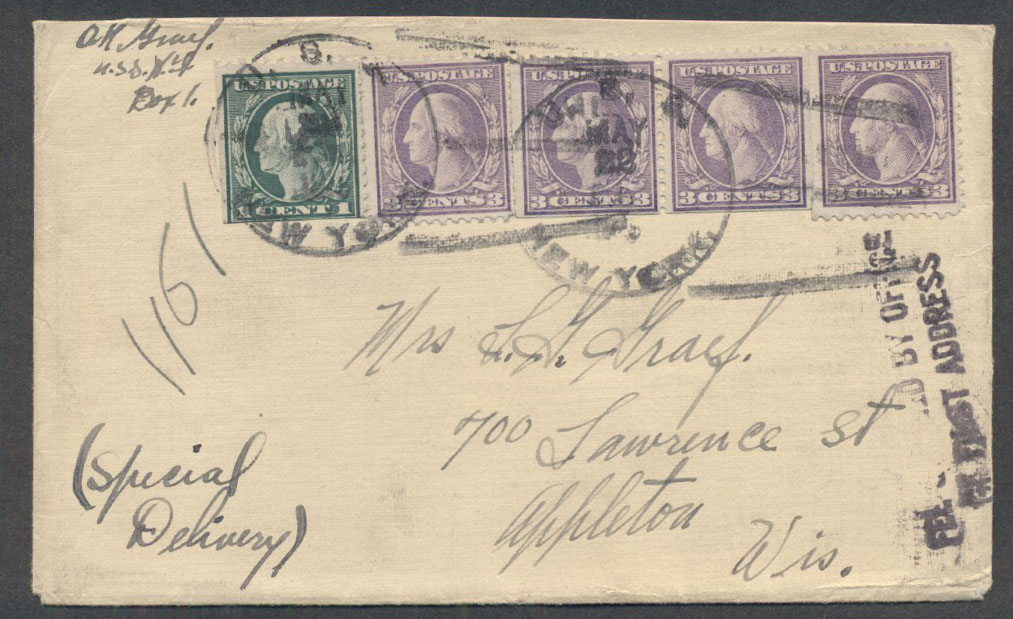 U.S.N.Y.
Box 1.
U.S. POSTAGE
1 CENT 1
U.S. POSTAGE
3 CENTS 3
U.S. POSTAGE
3 CENTS 3
U.S. POSTAGE
3 CENTS 3
U.S. POSTAGE
3 CENTS 3
MAY
22
NEW YORK.
1161
Mrs L. G. Graef.
700 Lawrence St
Appleton
Wis.
(Special
Delivery)
BY OFFICE
FIRST ADDRESS